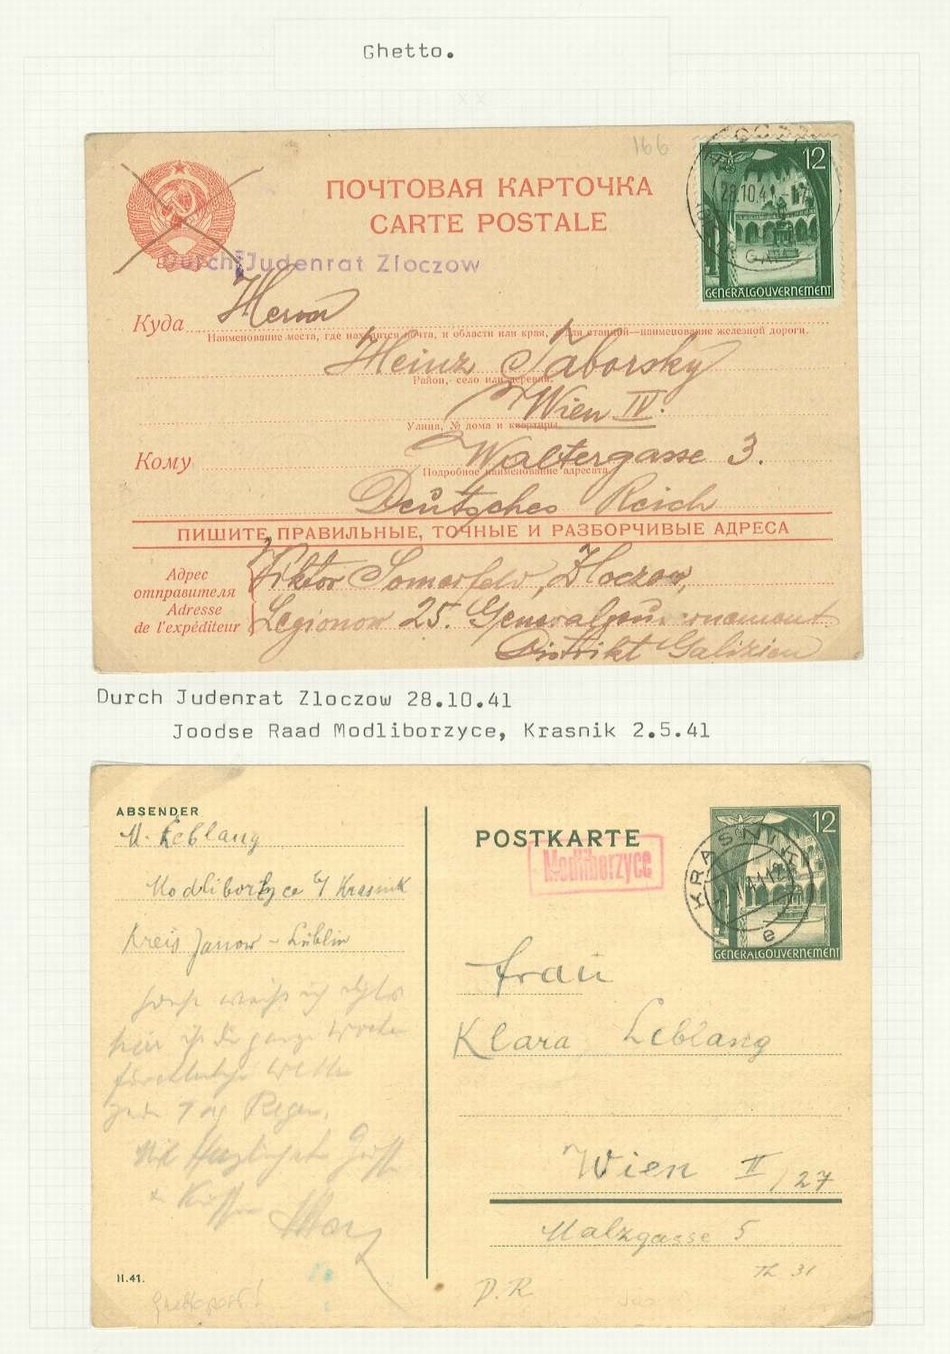 Ghetto.
166
ПОЧТОВАЯ КАРТОЧКА
CARTE POSTALE
12
28.10.41
GENERALGOUVERNEMENT
Durch Judenrat Zloczow
Куда
Herrn
Наименование места, где находится почта, и области или края, для станций—наименование железной дороги.
Heinz Taborsky
Район, село или деревня.
Wien IV.
Улица, № дома и квартиры.
Кому
Waltergasse 3.
Подробное наименование адресата.
Deutsches Reich
ПИШИТЕ ПРАВИЛЬНЫЕ, ТОЧНЫЕ И РАЗБОРЧИВЫЕ АДРЕСА
Адрес
отправителя
Adresse
de l'expéditeur
Viktor Somerfeld, Zloczow,
Legionow 25. Generalgouvernement
Distrikt Galizien
Durch Judenrat Zloczow 28.10.41
Joodse Raad Modliborzyce, Krasnik 2.5.41
ABSENDER
M. Leblang
Modliborzyce b/ Krasnik
Kreis Janow - Lublin
weiß ich
hier
jeden Tag Regen.
Mit herzlichsten
+ Küssen
II.41.
POSTKARTE
Modliborzyce
KRASNIK
e
12
GENERALGOUVERNEMENT
Frau
Klara Leblang
Wien II/27
Malzgasse 5
D.R.
Th 31